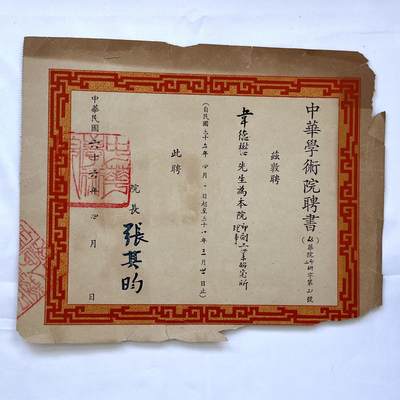 中華學術院聘書
華院所研字第21號
茲敦聘
韋德懋先生為本院印刷工業研究所理事
(自民國六十六年四月一日起至六十八年三月卅一日止)
此聘
院長 張其昀
中華民國六十六年四月 日